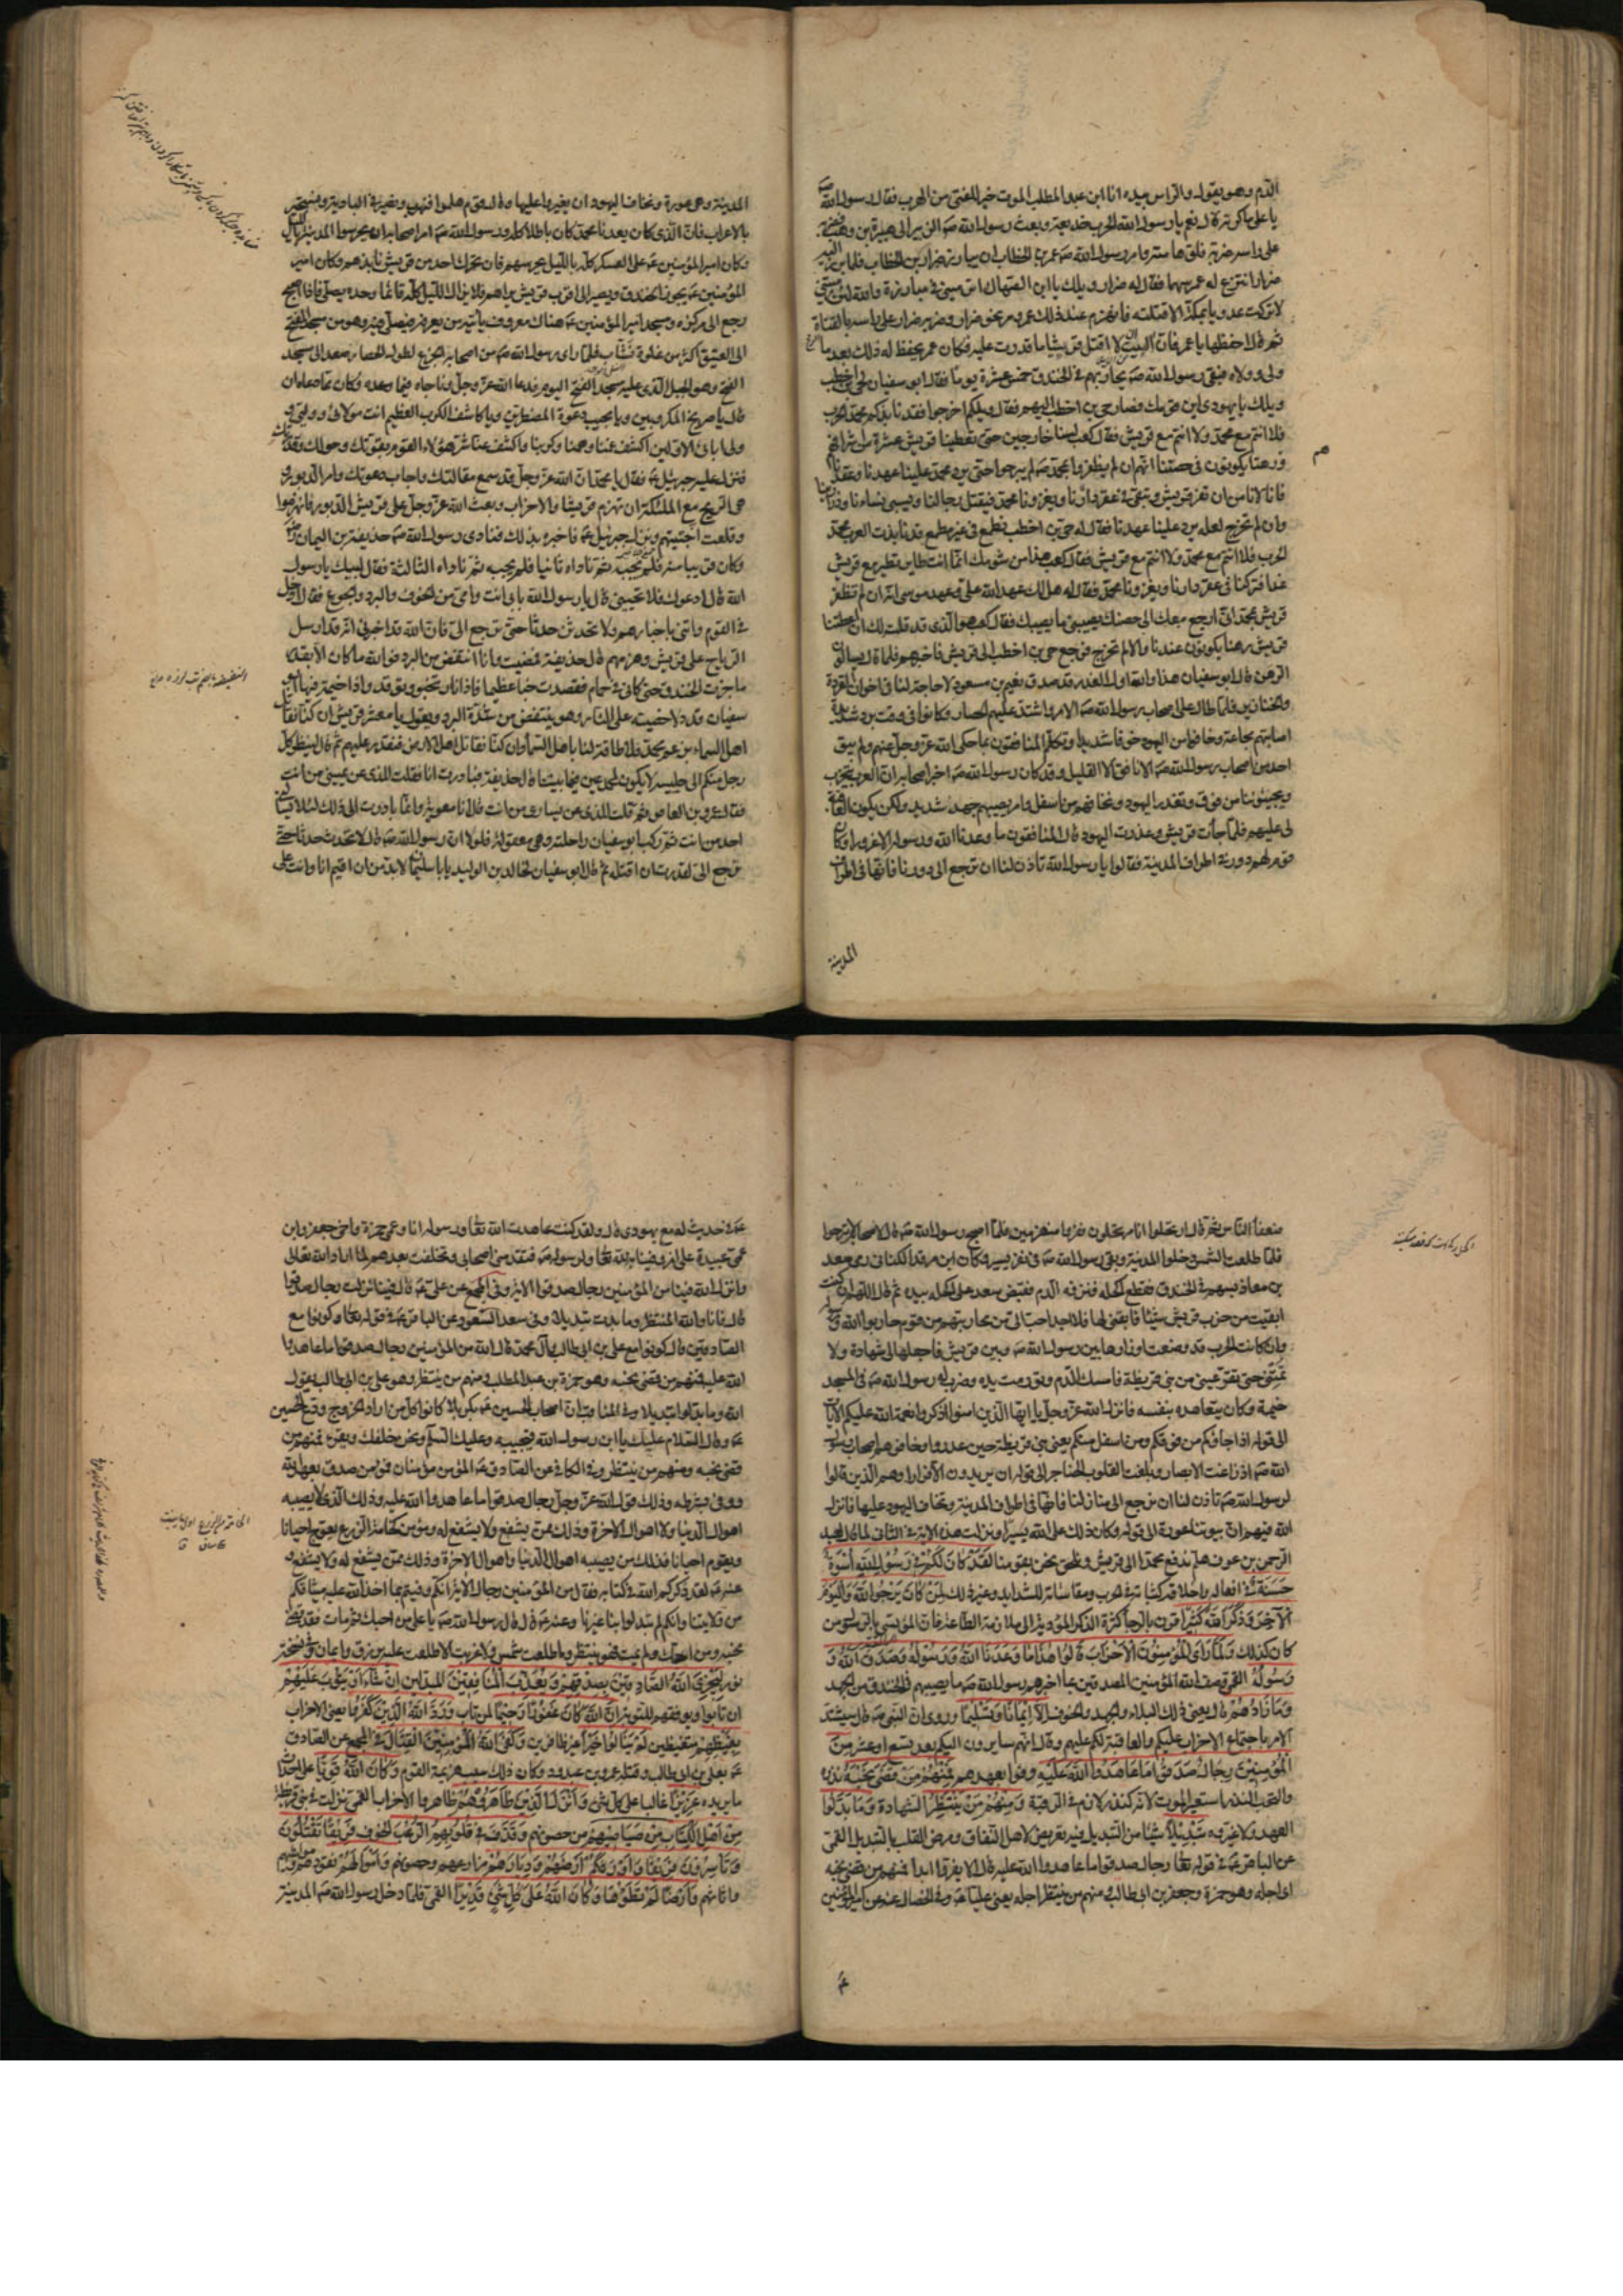 الدم وهو يقول والراس بيده انا ابن عبد المطلب الموت خير للفتى من الهرب فقال رسول الله صه
يا علي ماكرته قال نعم يا رسول الله الحرب خديعة وبعث رسول الله صه الزبير الى هبيرة بن وهب فضربه
على راسه ضربة فلق هامته وامر رسول الله صه عمر بن الخطاب ان يبارز ضرار بن الخطاب فلما برز اليه
ضرار انتزع له عمر سهما فقال له ضرار ويلك يا ابن الصهاك اترميني في مبارزة والله لئن رميتني
لا تركت عدويا بمكة الا قتلته فانهزم عند ذلك عمر ومر نحو ضرار وضربه ضرار على راسه بالقناة
ثم قال احفظها يا عمر فاني اليت ان لا اقتل قرشيا ما قدرت عليه فكان عمر يحفظ له ذلك بعد ما
ولي وولاه فبقي رسول الله صه يحاربهم في الخندق خمسة عشر يوما فقال ابو سفيان لحي بن اخطب
ويلك يا يهودي اين قومك فصار حي بن اخطب اليهم فقال ويلكم اخرجوا فقد نابذكم محمد الحرب
فلا انتم مع محمد ولا انتم مع قريش فقال كعب لسنا خارجين حتى تعطينا قريش عشرة من اشرافهم
رهنا يكونون في حصننا انهم ان لم يظفروا بمحمد صه لم يبرحوا حتى يرد محمد علينا عهدنا وعقدنا
فانا لا نامن ان تفر قريش ونبقى في عقر دارنا ويغزونا محمد فيقتل رجالنا ويسبي نساءنا وذرارينا
وان لم نخرج لعله يرد علينا عهدنا فقال له حي بن اخطب تطمع في غير مطمع قد نابذت العرب محمدا
الحرب فلا انتم مع محمد ولا انتم مع قريش فقال كعب هذا من شومك انما انت طاير تطير مع قريش
غدا وتتركنا في عقر دارنا ويغزونا محمد فقال له هل لك عهد الله علي وعهد موسى انه ان لم تظفر
قريش بمحمد اني ارجع معك الى حصنك يصيبني ما يصيبك فقال كعب هو الذي قد قلته لك ان اعطتنا
قريش رهنا يكونون عندنا والا لم نخرج فرجع حي بن اخطب الى قريش فاخبرهم فلما قال يسالون
الرهن قال ابو سفيان هذا والله اول الغدر قد صدق نعيم بن مسعود لا حاجة لنا في اخوان القردة
والخنازير فلما طال على اصحاب رسول الله صه الامر واشتد عليهم الحصار وكانوا في وقت برد شديد
اصابتهم مجاعة وخافوا من اليهود خوفا شديدا وتكلم المنافقون بما حكى الله عز وجل عنهم ولم يبق
احد من اصحاب رسول الله صه الا نافق الا القليل وقد كان رسول الله صه اخبر اصحابه ان العرب تتحزب
ويجيئوننا من فوق وتغدر اليهود ونخافهم من اسفل وانه يصيبهم جهد شديد ولكن يكون العاقبة
لي عليهم فلما جاءت قريش وغدرت اليهود قال المنافقون ما وعدنا الله ورسوله الا غرورا وكان
قوم لهم دور في اطراف المدينة فقالوا يا رسول الله تاذن لنا ان نرجع الى دورنا فانها في اطراف
المدينة
المدينة وهي عورة ونخاف اليهود ان يغيروا عليها وقال قوم هلموا فنهرب ونصير في البادية ونستجير
بالاعراب فان الذي كان يعدنا محمد كان باطلا كله ورسول الله صه امر اصحابه ان يحرسوا المدينة بالليل
وكان امير المؤمنين عه على العسكر كله بالليل يحرسهم فان تحرك احد من قريش نابذهم وكان امير
المؤمنين عه يجوز الخندق ويصير الى قرب قريش حيث يراهم فلا يزال الليل كله قائما وحده يصلي فاذا اصبح
رجع الى مركزه ومسجد امير المؤمنين عه هناك معروف ياتيه من يعرفه فيصلي فيه وهو من مسجد الفتح
الى العتيق اكثر من غلوة نشاب فلما راى رسول الله صه من اصحابه الجزع لطول الحصار صعد الى مسجد
الفتح وهو الجبل الذي عليه مسجد الفتح اليوم فدعا الله عز وجل وناجاه فيما وعده وكان مما دعاه ان
قال يا صريخ المكروبين ويا مجيب دعوة المضطرين ويا كاشف الكرب العظيم انت مولاي وولي
وولي ابائي الاولين اكشف عنا غمنا وهمنا وكربنا واكشف عنا شر هؤلاء القوم بقوتك وحولك وقدرتك
فنزل عليه جبرئيل عه فقال يا محمد ان الله عز وجل قد سمع مقالتك واجاب دعوتك وامر الدبور
هي الريح مع الملئكة ان تهزم قريشا والاحزاب وبعث الله عز وجل على قريش الدبور فانهزموا
وقلعت اخبيتهم ونزل جبرئيل عه فاخبره بذلك فنادى رسول الله صه حذيفة بن اليمان
وكان قريبا منه فلم يجبه ثم ناداه ثانيا فلم يجبه ثم ناداه الثالثة فقال لبيك يا رسول
الله قال ادعوك فلا تجيبني قال يا رسول الله بابي انت وامي من الخوف والبرد والجوع فقال ادخل
في القوم واتني باخبارهم ولا تحدثن حدثا حتى ترجع الي فان الله قد اخبرني انه قد ارسل
الرياح على قريش وهزمهم قال حذيفة فمضيت وانا انتفض من البرد فو الله ما كان الا بقدر
ما جزت الخندق حتى كاني في حمام فقصدت خباء عظيما فاذا نار تخبو وتوقد واذا خيمة فيها ابو
سفيان قد دلا خصيته على النار وهو ينتفض من شدة البرد ويقول يا معشر قريش ان كنا نقاتل
اهل السماء بزعم محمد فلا طاقة لنا باهل السماء وان كنا نقاتل اهل الارض فنقدر عليهم ثم قال لينظر كل
رجل منكم الى جليسه لا يكون لمحمد عين فيما بيننا قال حذيفة فبادرت انا فقلت للذي عن يميني من انت
فقال عمرو بن العاص ثم قلت للذي عن يساري من انت قال انا معوية وانما بادرت الى ذلك لئلا يسالني
احد من انت ثم ركب ابو سفيان راحلته وهي معقولة فلولا ان رسول الله صه قال لا تحدث حدثا حتى
ترجع الي لقدرت ان اقتله ثم قال ابو سفيان لخالد بن الوليد يا ابا سليمان لا بد من ان اقيم انا وانت على
ضعفاء الناس ثم قال ارتحلوا انا مرتحلون ففروا منهزمين فلما اصبح رسول الله صه قال لاصحابه لا تبرحوا
فلما طلعت الشمس دخلوا المدينة وبقي رسول الله صه في نفر يسير وكان ابن فرقد الكناني رمى سعد
بن معاذ بسهم في الخندق فقطع اكحله فنزفه الدم فقبض سعد على اكحله بيده ثم قال اللهم ان كنت
ابقيت من حرب قريش شيئا فابقني لها فلا احد احب الي من محاربتهم من قوم حاربوا الله ورسوله
وان كانت الحرب قد وضعت اوزارها بين رسول الله صه وبين قريش فاجعلها لي شهادة ولا
تمتني حتى تقر عيني من بني قريظة فامسك الدم وتورمت يده وضرب له رسول الله صه في المسجد
خيمة وكان يتعاهده بنفسه فانزل الله عز وجل يا ايها الذين امنوا اذكروا نعمة الله عليكم الايات
الى قوله اذ جاؤكم من فوقكم ومن اسفل منكم يعني بني قريظة حين غدروا وخافهم اصحاب رسول
الله صه اذ زاغت الابصار وبلغت القلوب الحناجر الى قوله ان يريدون الا فرارا وهم الذين قالوا
لرسول الله صه تاذن لنا ان نرجع الى منازلنا فانها في اطراف المدينة ونخاف اليهود عليها فانزل
الله فيهم ان بيوتنا عورة الى قوله وكان ذلك على الله يسيرا ونزلت هذه الاية في الثاني لما قال لعبد
الرحمن بن عوف هلم ندفع محمدا الى قريش ونلحق نحن بقومنا لَقَدْ كَانَ لَكُمْ فِي رَسُولِ اللَّهِ أُسْوَةٌ
حَسَنَةٌ في افعاله واخلاقه كثباته في الحرب ومقاساته للشدايد وغير ذلك لِمَنْ كَانَ يَرْجُوا اللَّهَ وَالْيَوْمَ
الْآخِرَ وَذَكَرَ اللَّهَ كَثِيرًا قرن بالرجاء كثرة الذكر المؤدية الى ملازمة الطاعة فان المؤتسي بالرسول من
كان كذلك وَلَمَّا رَأَى الْمُؤْمِنُونَ الْأَحْزَابَ قَالُوا هَذَا مَا وَعَدَنَا اللَّهُ وَرَسُولُهُ وَصَدَقَ اللَّهُ وَ
رَسُولُهُ القمي وصف الله المؤمنين المصدقين بما اخبرهم رسول الله صه ما يصيبهم في الخندق من الجهد
وَمَا زَادَهُمْ قال يعني ذلك البلاء والجهد والخوف إِلَّا إِيمَانًا وَتَسْلِيمًا وروي ان النبي صه قال سيشتد
الامر باجتماع الاحزاب عليكم والعاقبة لكم عليهم وقال انهم سايرون اليكم بعد تسع او عشر مِنَ
الْمُؤْمِنِينَ رِجَالٌ صَدَقُوا مَا عَاهَدُوا اللَّهَ عَلَيْهِ وفوا بعهدهم فَمِنْهُمْ مَنْ قَضَى نَحْبَهُ نذره
والنحب النذر استعير للموت لانه كنذر لازم في الرقبة وَمِنْهُمْ مَنْ يَنْتَظِرُ الشهادة وَمَا بَدَّلُوا
العهد ولا غيروه تَبْدِيلًا شيئا من التبديل فيه تعريض لاهل النفاق ومرض القلب بالتبديل القمي
عن الباقر عه في قوله تعا رجال صدقوا ما عاهدوا الله عليه قال الا يفروا ابدا فمنهم من قضى نحبه
اي اجله وهو حمزة وجعفر بن ابي طالب ومنهم من ينتظر اجله يعني عليا عه وفي الخصال عنه عن امير المؤمنين
عه في حديث له مع يهودي قال ولقد كنت عاهدت الله تعا ورسوله انا وعمي حمزة واخي جعفر وابن
عمي عبيدة على امر وفينا به لله تعا ولرسوله صه فتقدمني اصحابي وتخلفت بعدهم لما اراد الله تعالى
وانزل الله فينا من المؤمنين رجال صدقوا الاية وفي المجمع عن علي عه قال فينا نزلت رجال صدقوا
قال فانا والله المنتظر وما بدلت تبديلا وفي سعد السعود عن الباقر عه في قوله تعا وكونوا مع
الصادقين قال كونوا مع علي بن ابي طالب وآل محمد قال الله من المؤمنين رجال صدقوا ما عاهدوا
الله عليه فمنهم من قضى نحبه وهو حمزة بن عبد المطلب ومنهم من ينتظر وهو علي بن ابي طالب يقول
الله وما بدلوا تبديلا وفي المناقب ان اصحاب الحسين عه بكربلا كانوا كل من اراد الخروج ودع الحسين
عه وقال السلام عليك يا ابن رسول الله فيجيبه وعليك السلام ونحن خلفك ويقرء فمنهم من
قضى نحبه ومنهم من ينتظر وفي الكافي عن الصادق عه المؤمن مؤمنان فمؤمن صدق بعهد الله
ووفى بشرطه وذلك قول الله عز وجل رجال صدقوا ما عاهدوا الله عليه وذلك الذي لا يصيبه
اهوال الدنيا ولا اهوال الاخرة وذلك ممن يشفع ولا يشفع له ومؤمن كخامة الزرع يعوج احيانا
ويقوم احيانا فذلك من يصيبه اهوال الدنيا واهوال الاخرة وذلك ممن يشفع له ولا يشفع و
عنه عه لقد ذكركم الله في كتابه فقال من المؤمنين رجال الاية انكم وفيتم بما اخذ الله عليه ميثاقكم
من ولايتنا وانكم لم تبدلوا بنا غيرنا وعنه عه قال قال رسول الله صه يا علي من احبك ثم مات فقد قضى
نحبه ومن احبك ولم يمت فهو ينتظر وما طلعت شمس ولا غربت الا طلعت عليه برزق وايمان وفي نسخة
نور لِيَجْزِيَ اللَّهُ الصَّادِقِينَ بِصِدْقِهِمْ وَيُعَذِّبَ الْمُنَافِقِينَ المبدلين إِنْ شَاءَ أَوْ يَتُوبَ عَلَيْهِمْ
ان تابوا او يوفقهم للتوبة إِنَّ اللَّهَ كَانَ غَفُورًا رَحِيمًا لمن تاب وَرَدَّ اللَّهُ الَّذِينَ كَفَرُوا يعني الاحزاب
بِغَيْظِهِمْ متغيظين لَمْ يَنَالُوا خَيْرًا غير ظافرين وَكَفَى اللَّهُ الْمُؤْمِنِينَ الْقِتَالَ في المجمع عن الصادق
عه بعلي بن ابي طالب وقتله عمرو بن عبد ود وكان ذلك سبب هزيمة القوم وَكَانَ اللَّهُ قَوِيًّا على احداث
ما يريده عَزِيزًا غالبا على كل شئ وَأَنْزَلَ الَّذِينَ ظَاهَرُوهُمْ ظاهروا الاحزاب القمي نزلت في بني قريظة
مِنْ أَهْلِ الْكِتَابِ مِنْ صَيَاصِيهِمْ من حصونهم وَقَذَفَ فِي قُلُوبِهِمُ الرُّعْبَ الخوف فَرِيقًا تَقْتُلُونَ
وَتَأْسِرُونَ فَرِيقًا وَأَوْرَثَكُمْ أَرْضَهُمْ وَدِيَارَهُمْ مزارعهم وحصونهم وَأَمْوَالَهُمْ نقودهم ومواشيهم
واثاثهم وَأَرْضًا لَمْ تَطَئُوهَا وَكَانَ اللَّهُ عَلَى كُلِّ شَيْءٍ قَدِيرًا القمي فلما دخل رسول الله صه المدينة